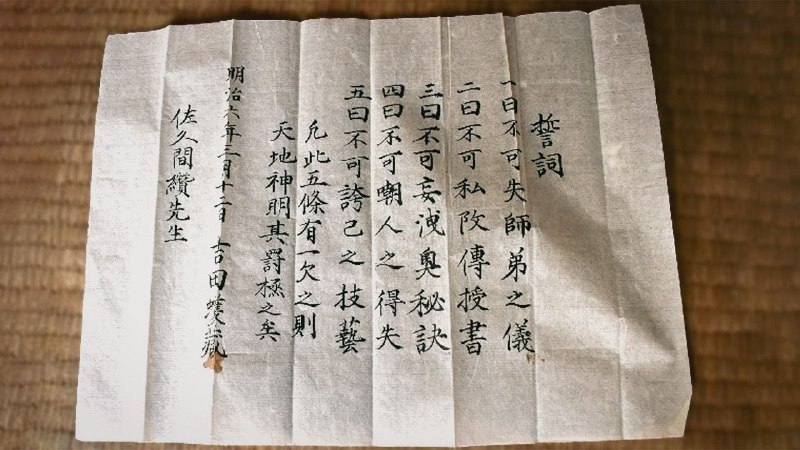 誓詞
一曰不可失師弟之儀
二曰不可私改傳授書
三曰不可妄洩奧秘訣
四曰不可嘲人之得失
五曰不可誇己之技藝
凢此五條有一欠之則
天地神明其罰極之矣
明治六年三月十二日 吉田蔵
佐久間纉先生